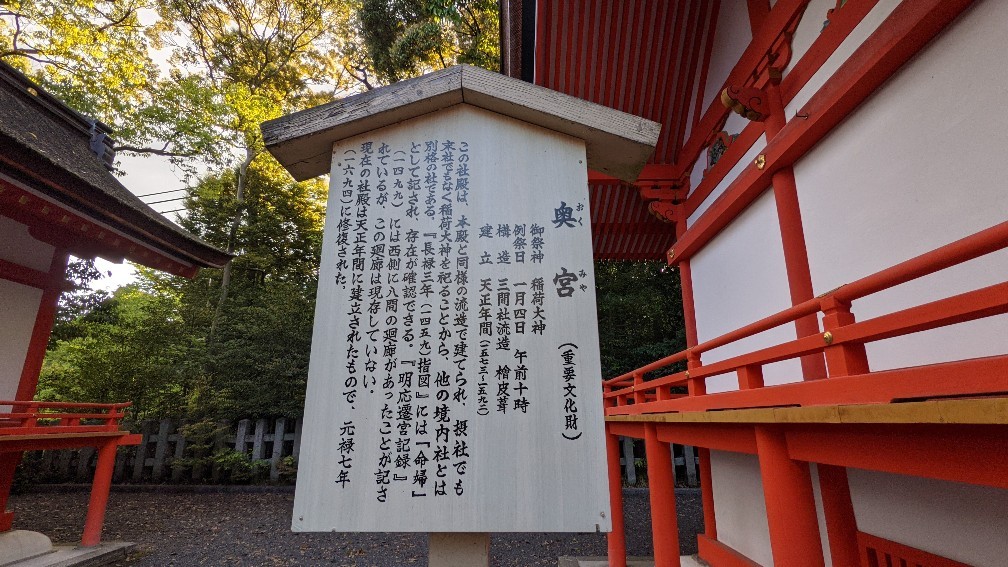 奥宮 (重要文化財)
おく みや
御祭神 稲荷大神
例祭日 一月四日 午前十時
構造 三間社流造 檜皮葺
建立 天正年間(一五七三〜一五九二)
この社殿は、本殿と同様の流造で建てられ、摂社でも
末社でもなく稲荷大神を祀ることから、他の境内社とは
別格の社である。『長禄三年(一四五九)指図』には「命婦」
として記され、存在が確認できる。『明応遷宮記録』
(一四九九)には西側に八間の廻廊があったことが記さ
れているが、この廻廊は現存していない。
現在の社殿は天正年間に建立されたもので、元禄七年
(一六九四)に修復された。